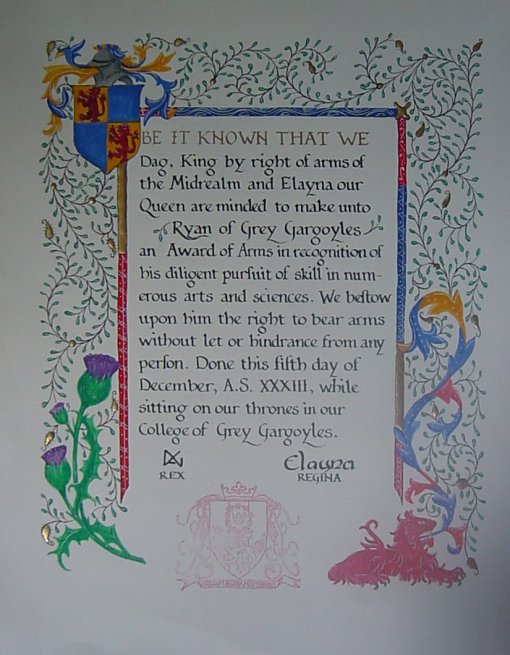 BE IT KNOWN THAT WE
Dag, King by right of arms of
the Midrealm and Elayna our
Queen are minded to make unto
Ryan of Grey Gargoyles
an Award of Arms in recognition of
his diligent purſuit of skill in num-
erous arts and sciences. We beſtow
upon him the right to bear arms
without let or hindrance from any
perſon. Done this fifth day of
December, A.S. XXXIII, while
sitting on our thrones in our
College of Grey Gargoyles.
Elayna
REX REGINA